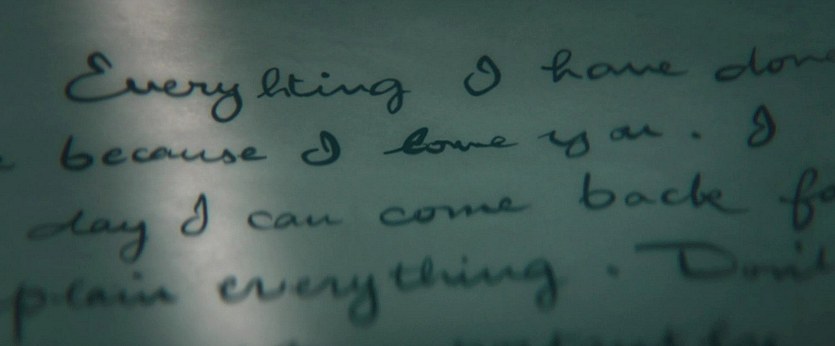 Everything I have done
because I love you. I
day I can come back fo
plain everything. Don't